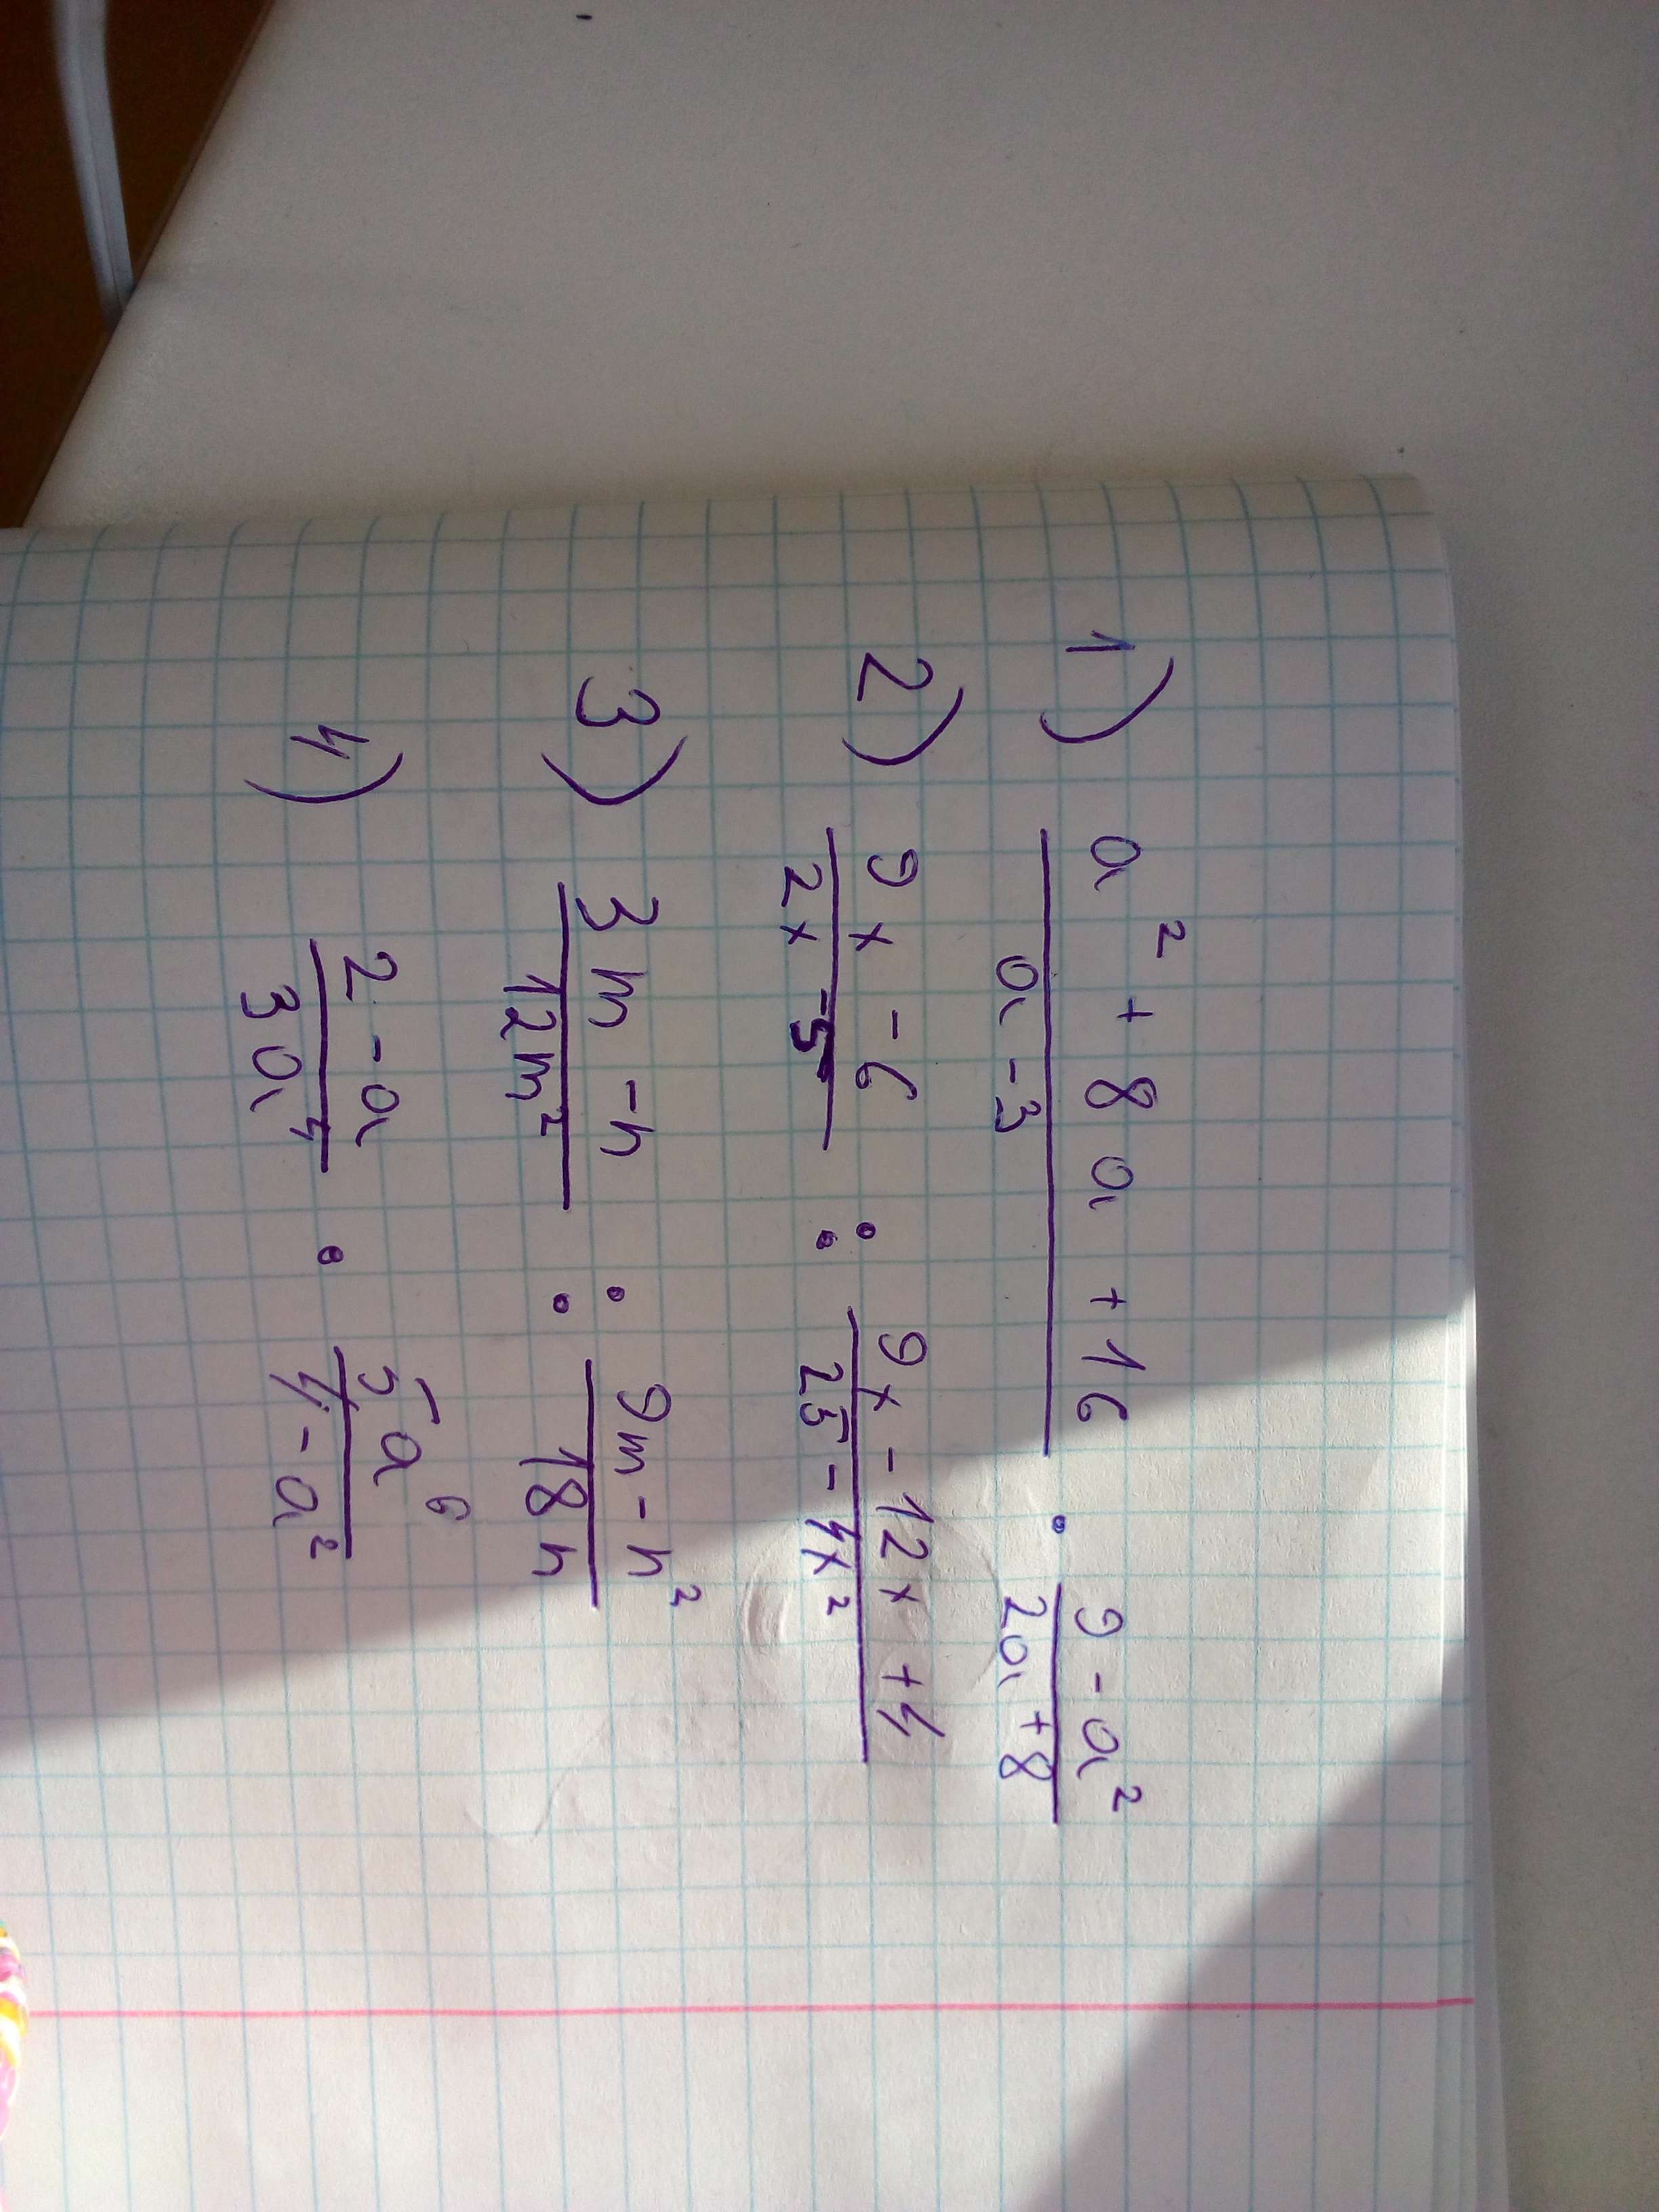 1) (a² + 8a + 16)/(a - 3) · (9 - a²)/(2a + 8)
2) (9x - 6)/(2x - 5) : (9x - 12x + 4)/(25 - 4x²)
3) (3m - n)/(12m²) : (9m - n²)/(18n)
4) (2 - a)/(3a⁴) · (5a⁶)/(4 - a²)